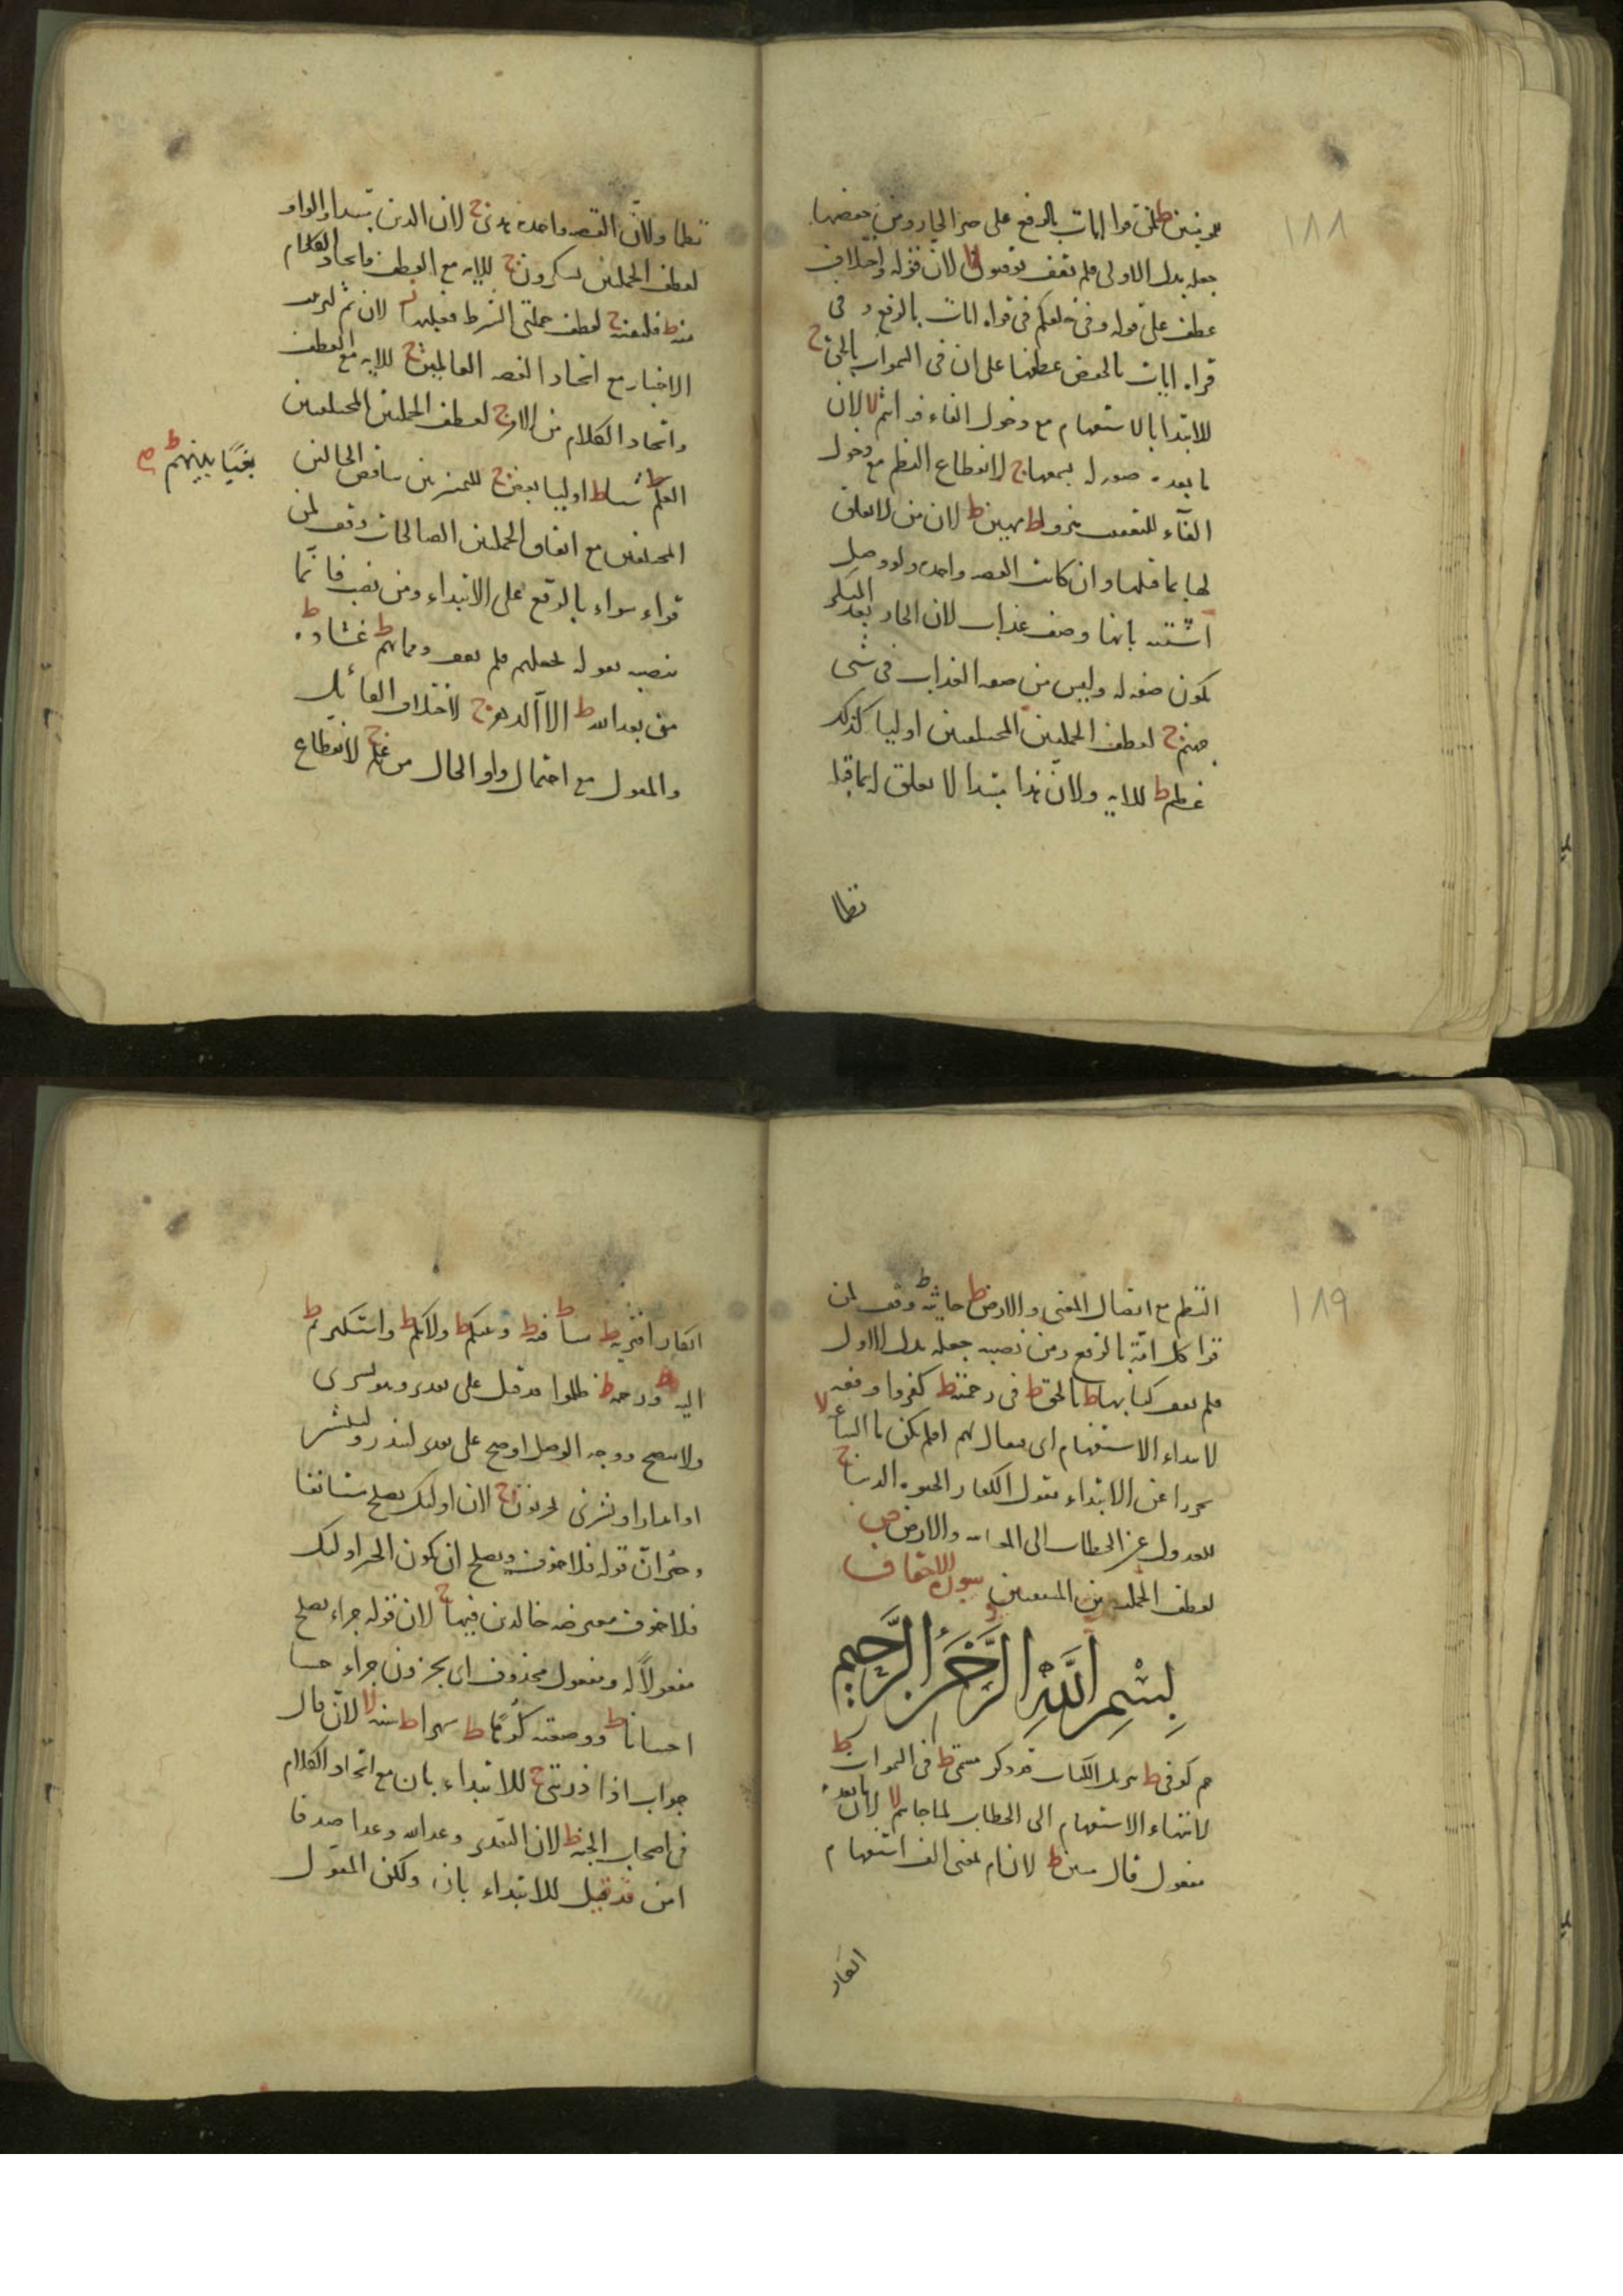 ١٨٨
للمؤمنين ط لمن قرا ايات بالرفع على خبر الجار ومن خفضها
جعله بدل الاولى فلم يقف يوقنون لا لان قوله واختلاف
عطف على قوله وفى خلقكم فى قراه ايات بالرفع و فى
قراه ايات بالخفض عطفها على ان فى السموات بالحق ج
للابتدا بالاستفهام مع دخول الفاء فيه اثيم لا لان
ما بعده صفه له يسمعها ج لانقطاع النظم مع دخول
الفآء للتعقيب هزوا ط مهين ط لان من لا تعلق
لها بما قبلها وان كانت القصه واحده ولو وصل
اشتبه بانها وصف عذاب لان الجار بعد النكره
تكون صفه له وليس من صفه العذاب فى شى
جهنم ج لعطف الجملتين المختلفتين اوليا كذلك
عظيم ط للايه ولان هذا مبتدا لا تعلق له بما قبله
نظما
نظما ولان القصه واحده هدى ج لان الذين مبتدا والواو
لعطف الجملتين تشكرون ج للايه مع العطف واتحاد الكلام
منه ط فلنفسه ج لعطف جملتى الشرط فعليها لان ثم لترتيب
الاخبار مع اتحاد القصه العالمين ج للايه مع العطف
واتحاد الكلام من الامر ج لعطف الجملتين المختلفتين
العلم لا شيا ط اوليا بعض ج للتمييز بين تناقض الحالتين
بغيًا بينهم ط
المختلفتين مع اتفاق الجملتين الصالحات وقف لمن
قراء سواء بالرفع على الابتداء ومن نصب فانما
نصبه بقوله نجعلهم فلم يقف ومماتهم ط غشاوه ط
من بعد الله ط الا الدهر ج لاختلاف القائل
والمقول مع احتمال واو الحال من علم ج لانقطاع
١٨٩
النظم مع اتصال المعنى والارض ط جاثيه ط وقف لمن
قرا كل امة بالرفع ومن نصبه جعله بدل الاول
فلم يقف كتابها ط بالحق ط فى رحمته ط كفروا وقفه
لابتداء الاستفهام اى فيقال لهم افلم تكن ما الساعه لا
تحرزا عن الابتداء بقول الكفار الحيوه الدنيا ج
للعدول عن الخطاب الى المغايبه والارض ص
لعطف الجملتين المتفقتين سورة الاحقاف
بِسْمِ اللَّهِ الرَّحْمَنِ الرَّحِيمِ
حم كوفى ط تنزيل الكتاب قد ذكر مسمى ط فى السموات ط
لانتهاء الاستفهام الى الخطاب لما جاءهم لا لان ما بعده
مفعول قال مبين ط لان ام بمعنى الف استفهام
انكار
انكار افتريه ط شيا ط فيه ط وبينكم ط ولا بكم ط واستكبرتم ط
اليه ط ورحمه ط ظلموا قد قيل على تقدير وهو بشرى
ولا يصح ووجه الوصل اوضح على تقدير لينذر وليبشر
يحزنون ج لان اولئك يصلح مستانفا
وخبر ان قوله فلا خوف ويصلح ان يكون الخبر اولئك
فلا خوف معترضه خالدين فيها ج لان قوله جزاء يصلح
مفعولاً له ومفعول محذوف اى يجزون جزاء حسنا
احسانا ط ووضعته كرها ط شهرا ط سنه لا لان قال
جواب اذا ذريتى ج للابتداء بان مع اتحاد الكلام
فى اصحاب الجنه ط لان التقدير وعد الله وعدا صدقا
امن قد قيل للابتداء بان ولكن المقول